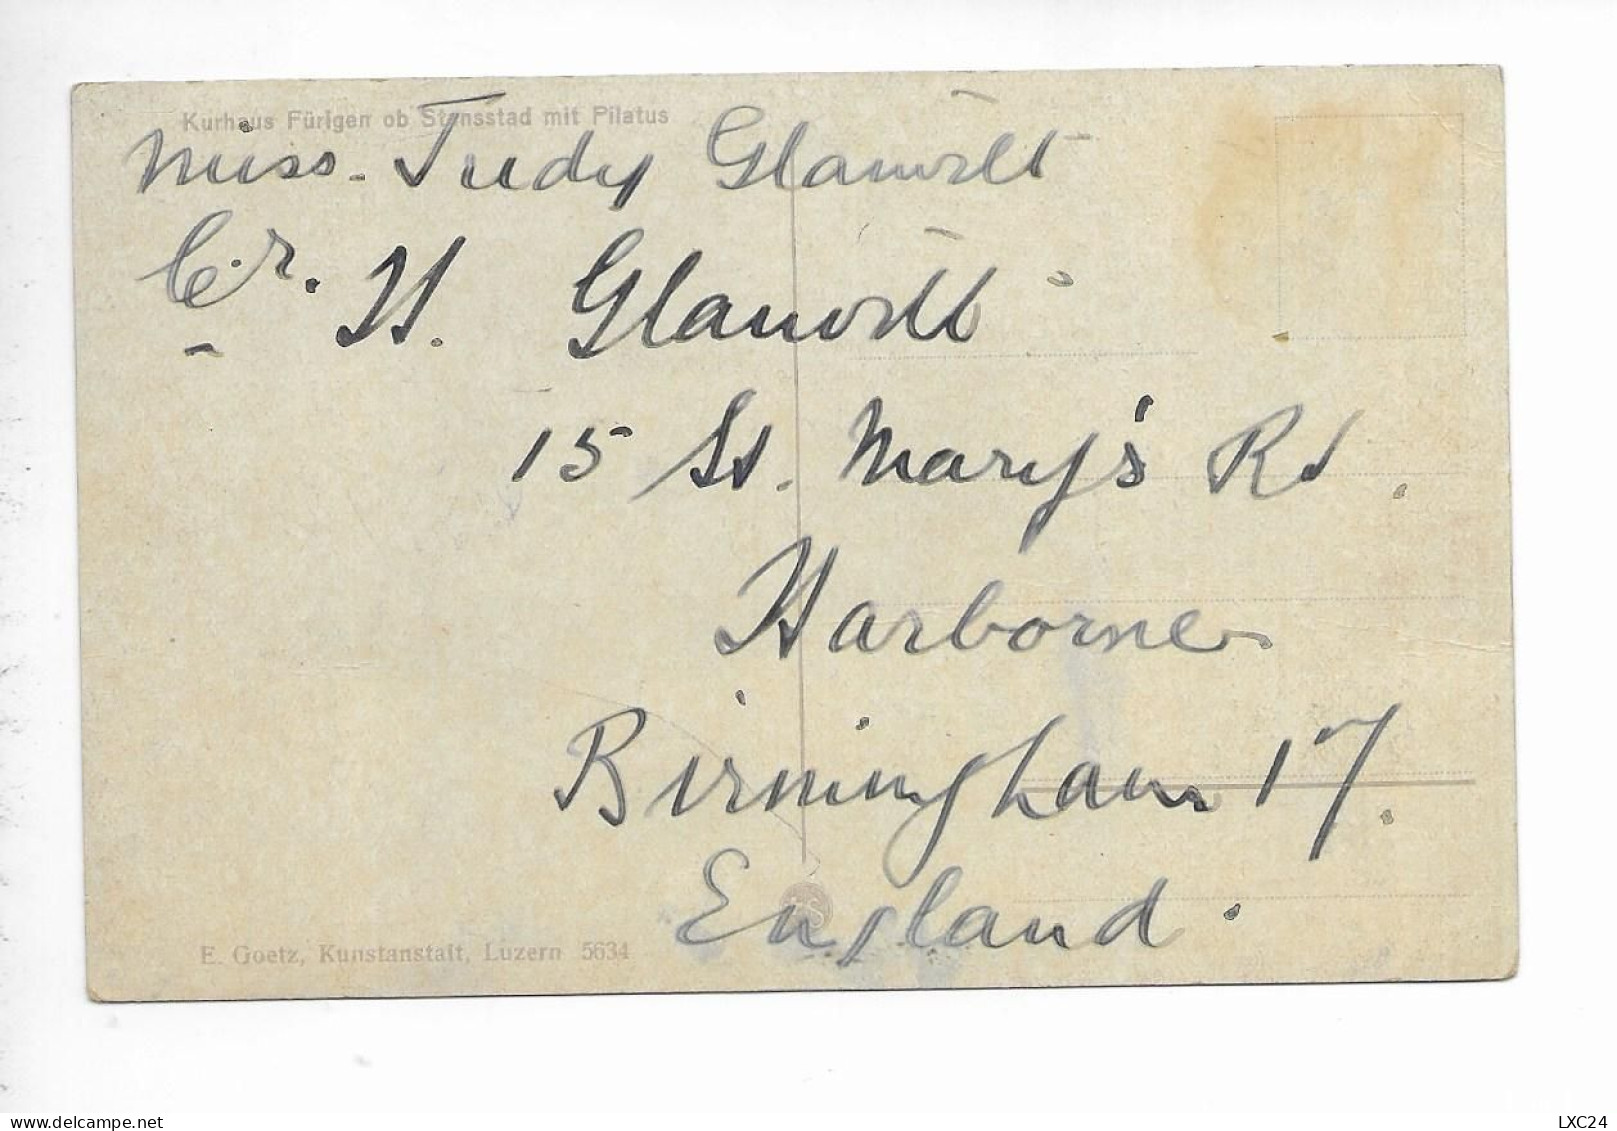 Kurhaus Fürigen ob Stansstad mit Pilatus
Miss. Judy
H.
15 St. Mary's Rd.
Harborne
Birmingham 17.
England.
E. Goetz, Kunstanstalt, Luzern 5634
www.delcampe.net
LXC24